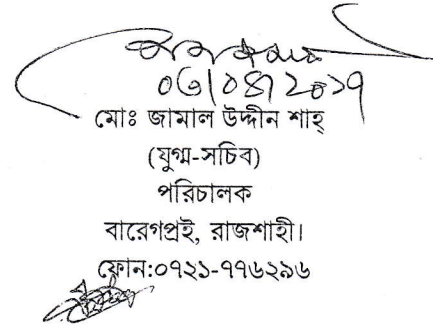 মোঃ জামাল উদ্দীন শাহ্
(যুগ্ম-সচিব)
পরিচালক
বারেগপ্রই, রাজশাহী।
ফোন:০৭২১-৭৭৬২৯৬